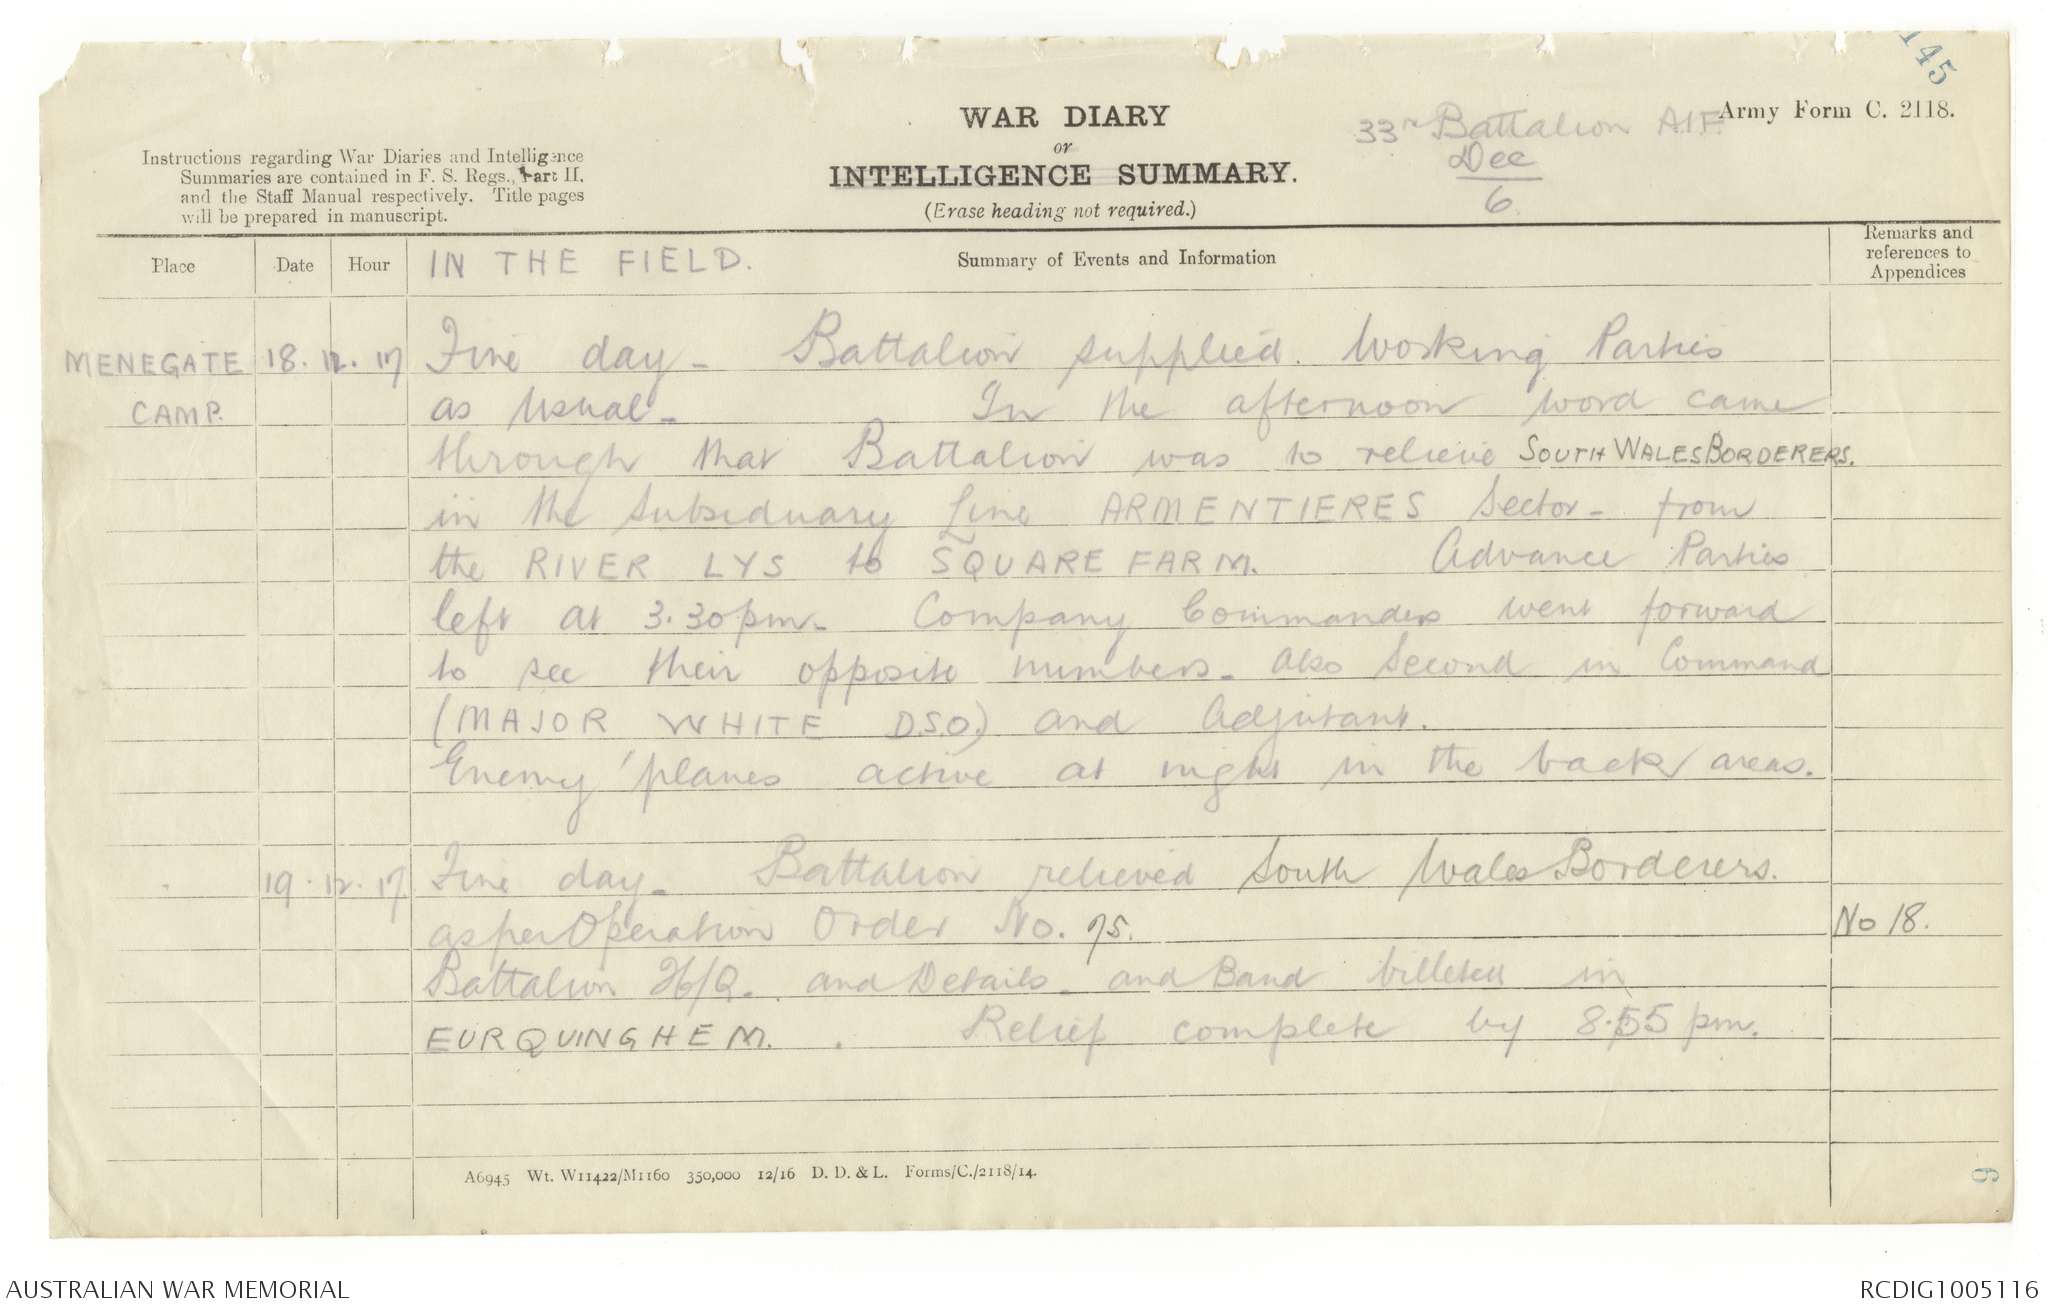 145
WAR DIARY
or
INTELLIGENCE SUMMARY.
(Erase heading not required.)
Army Form C. 2118.
33rd Battalion A.I.F.
Dec
6.
Instructions regarding War Diaries and Intelligence
Summaries are contained in F. S. Regs., Part II.
and the Staff Manual respectively. Title pages
will be prepared in manuscript.
Place Date Hour IN THE FIELD. Summary of Events and Information
Remarks and
references to
Appendices
MENEGATE 18.12.17 Fine day - Battalion supplied. Working Parties
CAMP. as usual - In the afternoon word came
through that Battalion was to relieve SOUTH WALES BORDERERS.
in the Subsiduary Line ARMENTIERES Sector - from
the RIVER LYS to SQUARE FARM. Advance Parties
left at 3.30 pm - Company Commanders went forward
to see their opposite numbers - also Second in Command
(MAJOR WHITE D.S.O.) and Adjutant.
Enemy 'planes active at night in the back areas.
19.12.17 Fine day - Battalion relieved South Wales Borderers.
as per Operation Order No. 75. No 18.
Battalion H/Q. and Details - and Band billeted in
EURQUINGHEM. Relief complete by 8.55 pm.
A6945 Wt. W11422/M1160 350,000 12/16 D. D. & L. Forms/C./2118/14.
6
AUSTRALIAN WAR MEMORIAL
RCDIG1005116